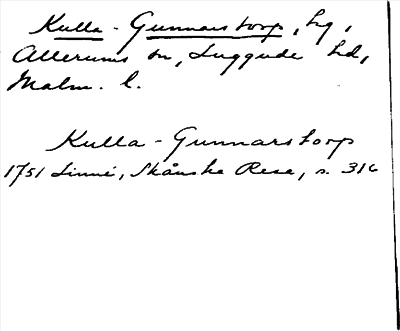 Kulla-Gunnarstorp, hg,
Allerums sn, Luggude hd,
Malm. l.
Kulla-Gunnarstorp
1751 Linné, Skånska Resa, s. 316